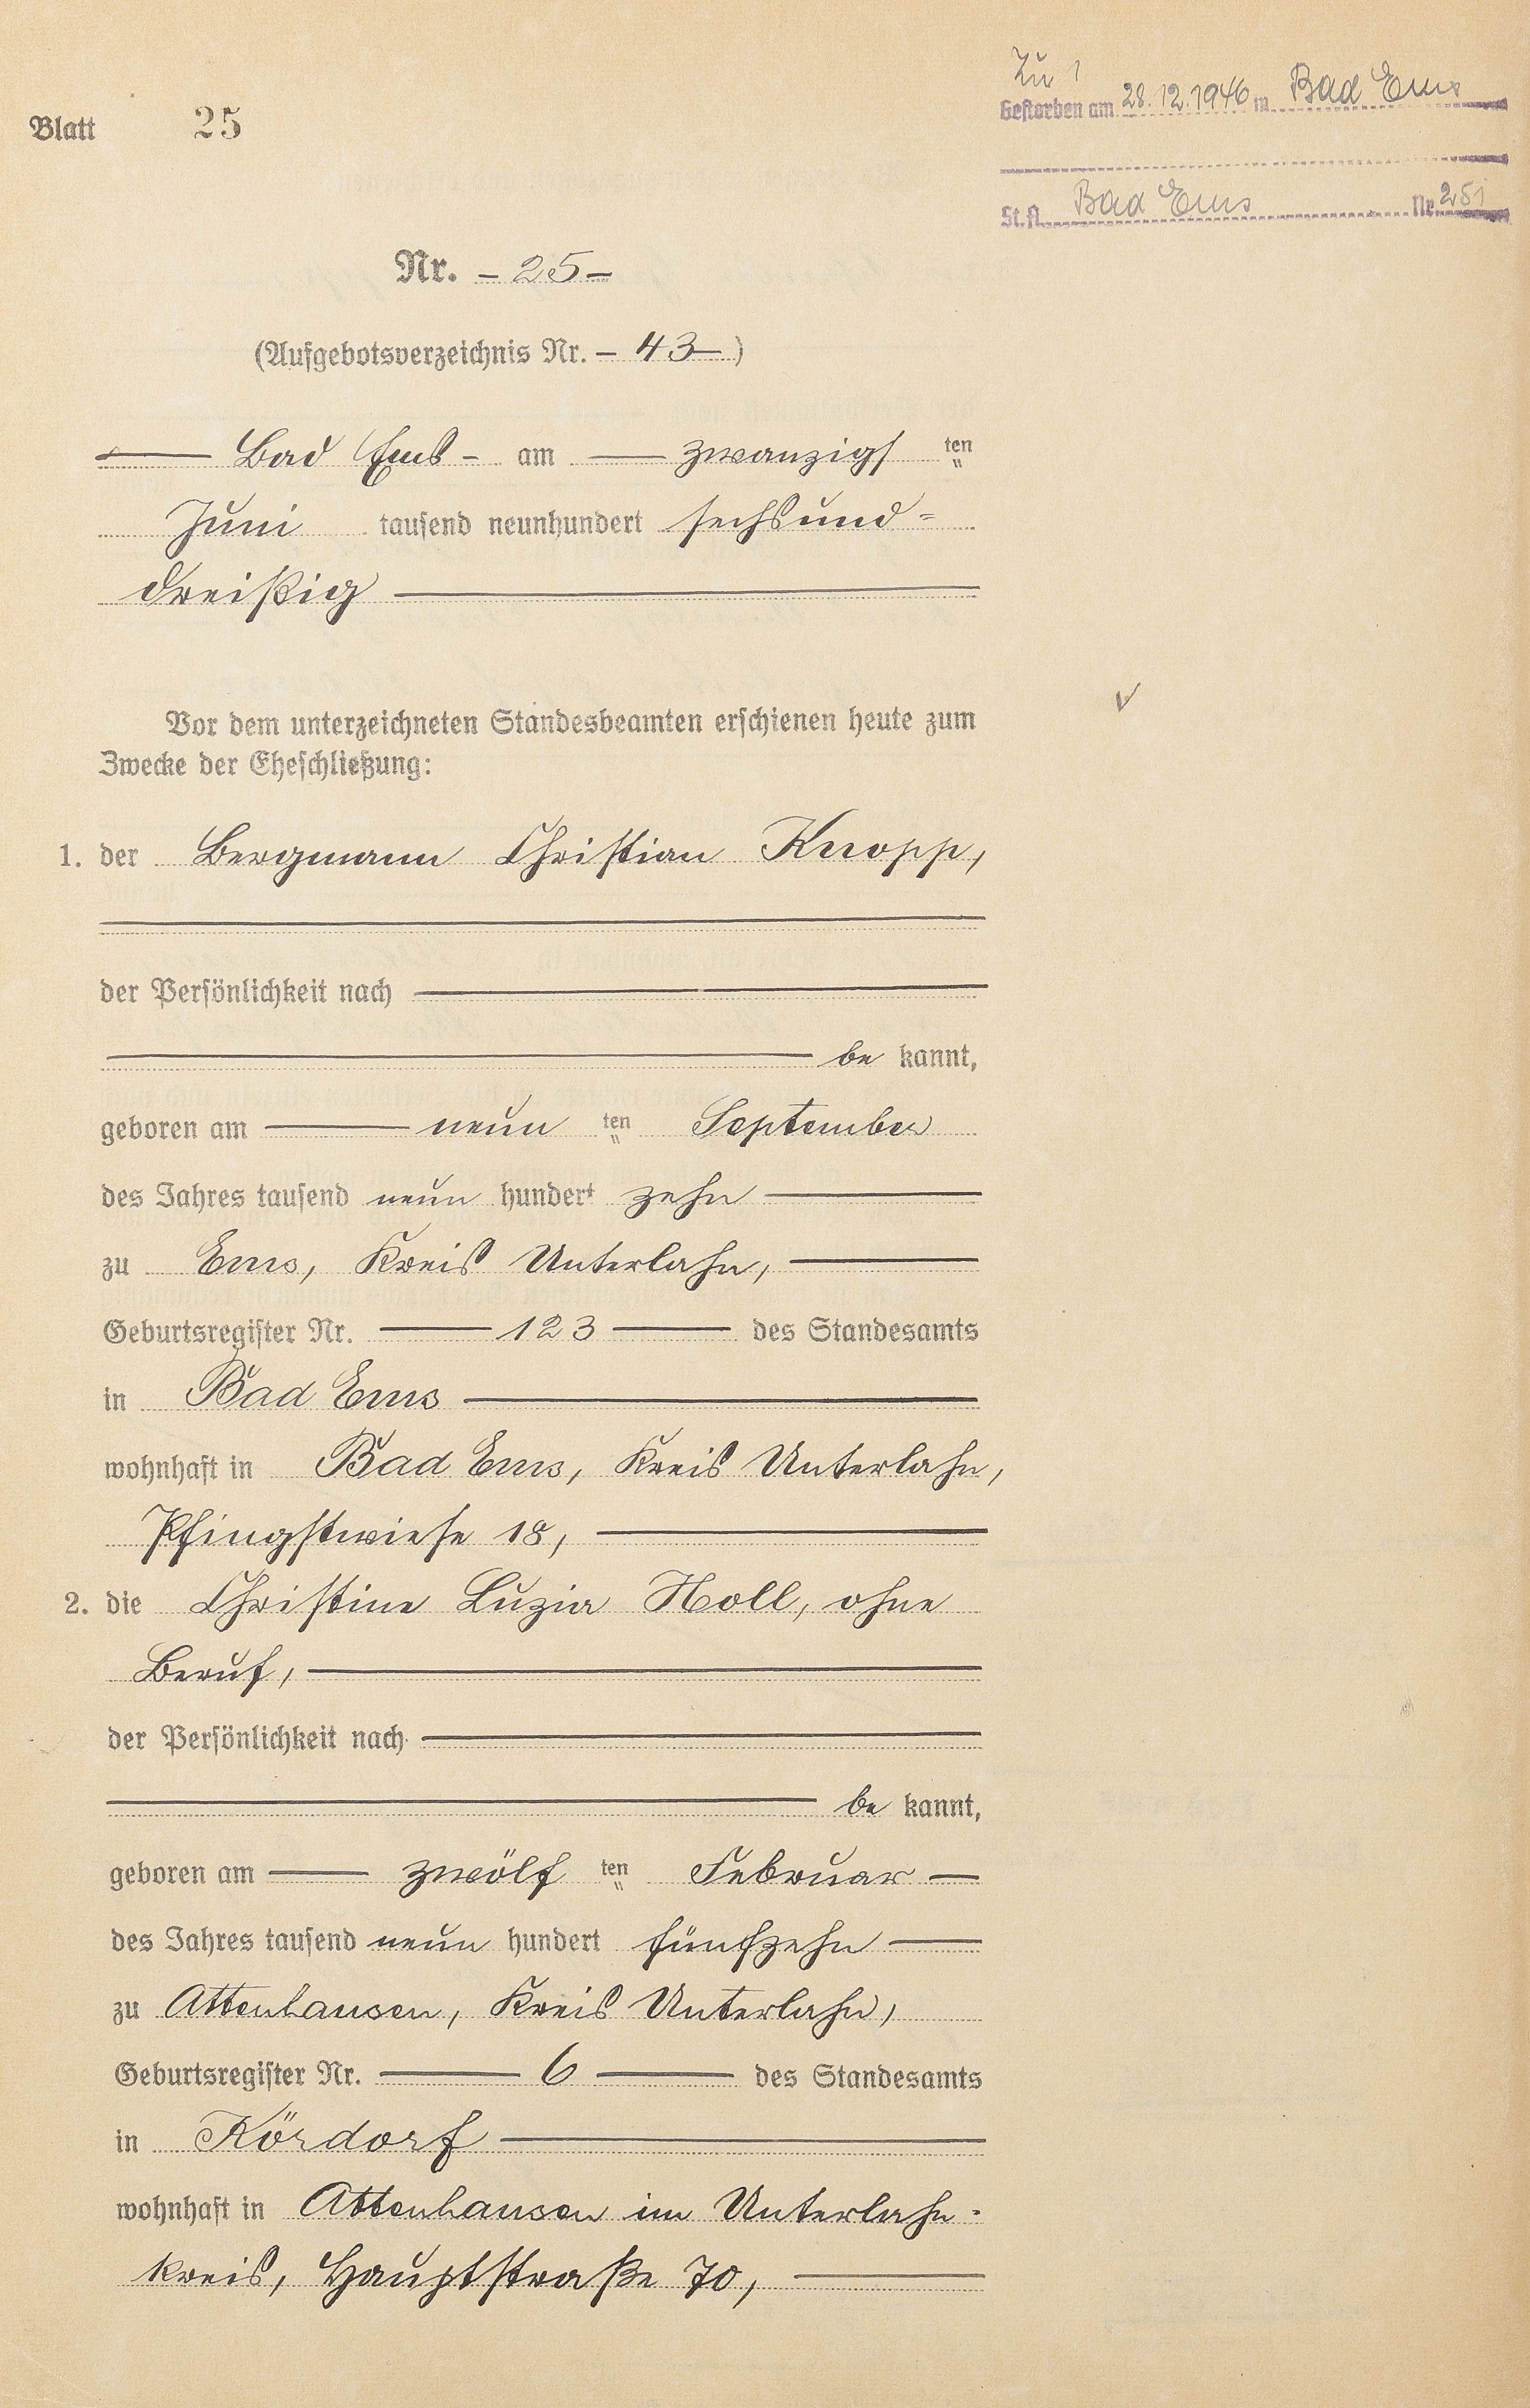 Zu 1
Gestorben am 28.12.1946 in Bad Ems
St. A. Bad Ems Nr. 251
Blatt 25
Nr. - 25 -
(Aufgebotsverzeichnis Nr. - 43 - )
Bad Ems - am zwanzigs ten
Juni tausend neunhundert sechsund=
dreißig
Vor dem unterzeichneten Standesbeamten erschienen heute zum
Zwecke der Eheschließung:
1. der Bergmann Christian Knopp,
der Persönlichkeit nach
be kannt,
geboren am neun ten September
des Jahres tausend neun hundert zehn
zu Ems, Kreis Unterlahn,
Geburtsregister Nr. 123 des Standesamts
in Bad Ems
wohnhaft in Bad Ems, Kreis Unterlahn,
Pfingstwiese 18,
2. die Christine Luzia Noll, ohne
Beruf,
der Persönlichkeit nach
be kannt,
geboren am zwölf ten Februar
des Jahres tausend neun hundert fünfzehn
zu Attenhausen, Kreis Unterlahn,
Geburtsregister Nr. 6 des Standesamts
in Kördorf
wohnhaft in Attenhausen im Unterlahn-
kreis, Hauptstraße 70,